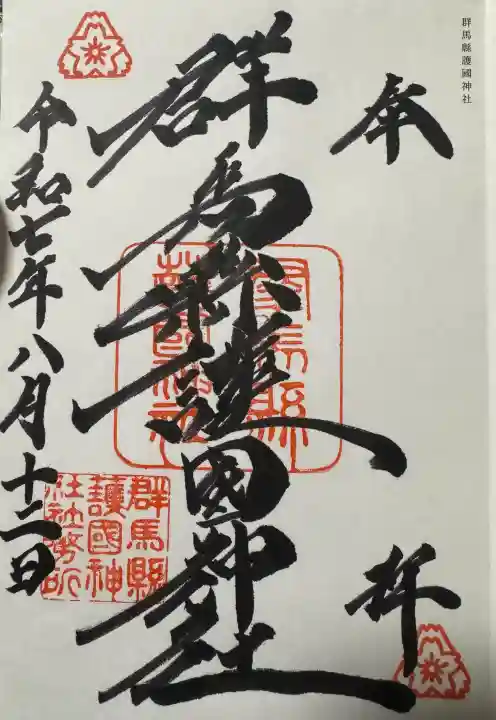 群馬縣護國神社
奉拝
群馬縣護國神社
群馬縣護國神社
令和七年八月十二日
群馬縣
護國神
社社務所